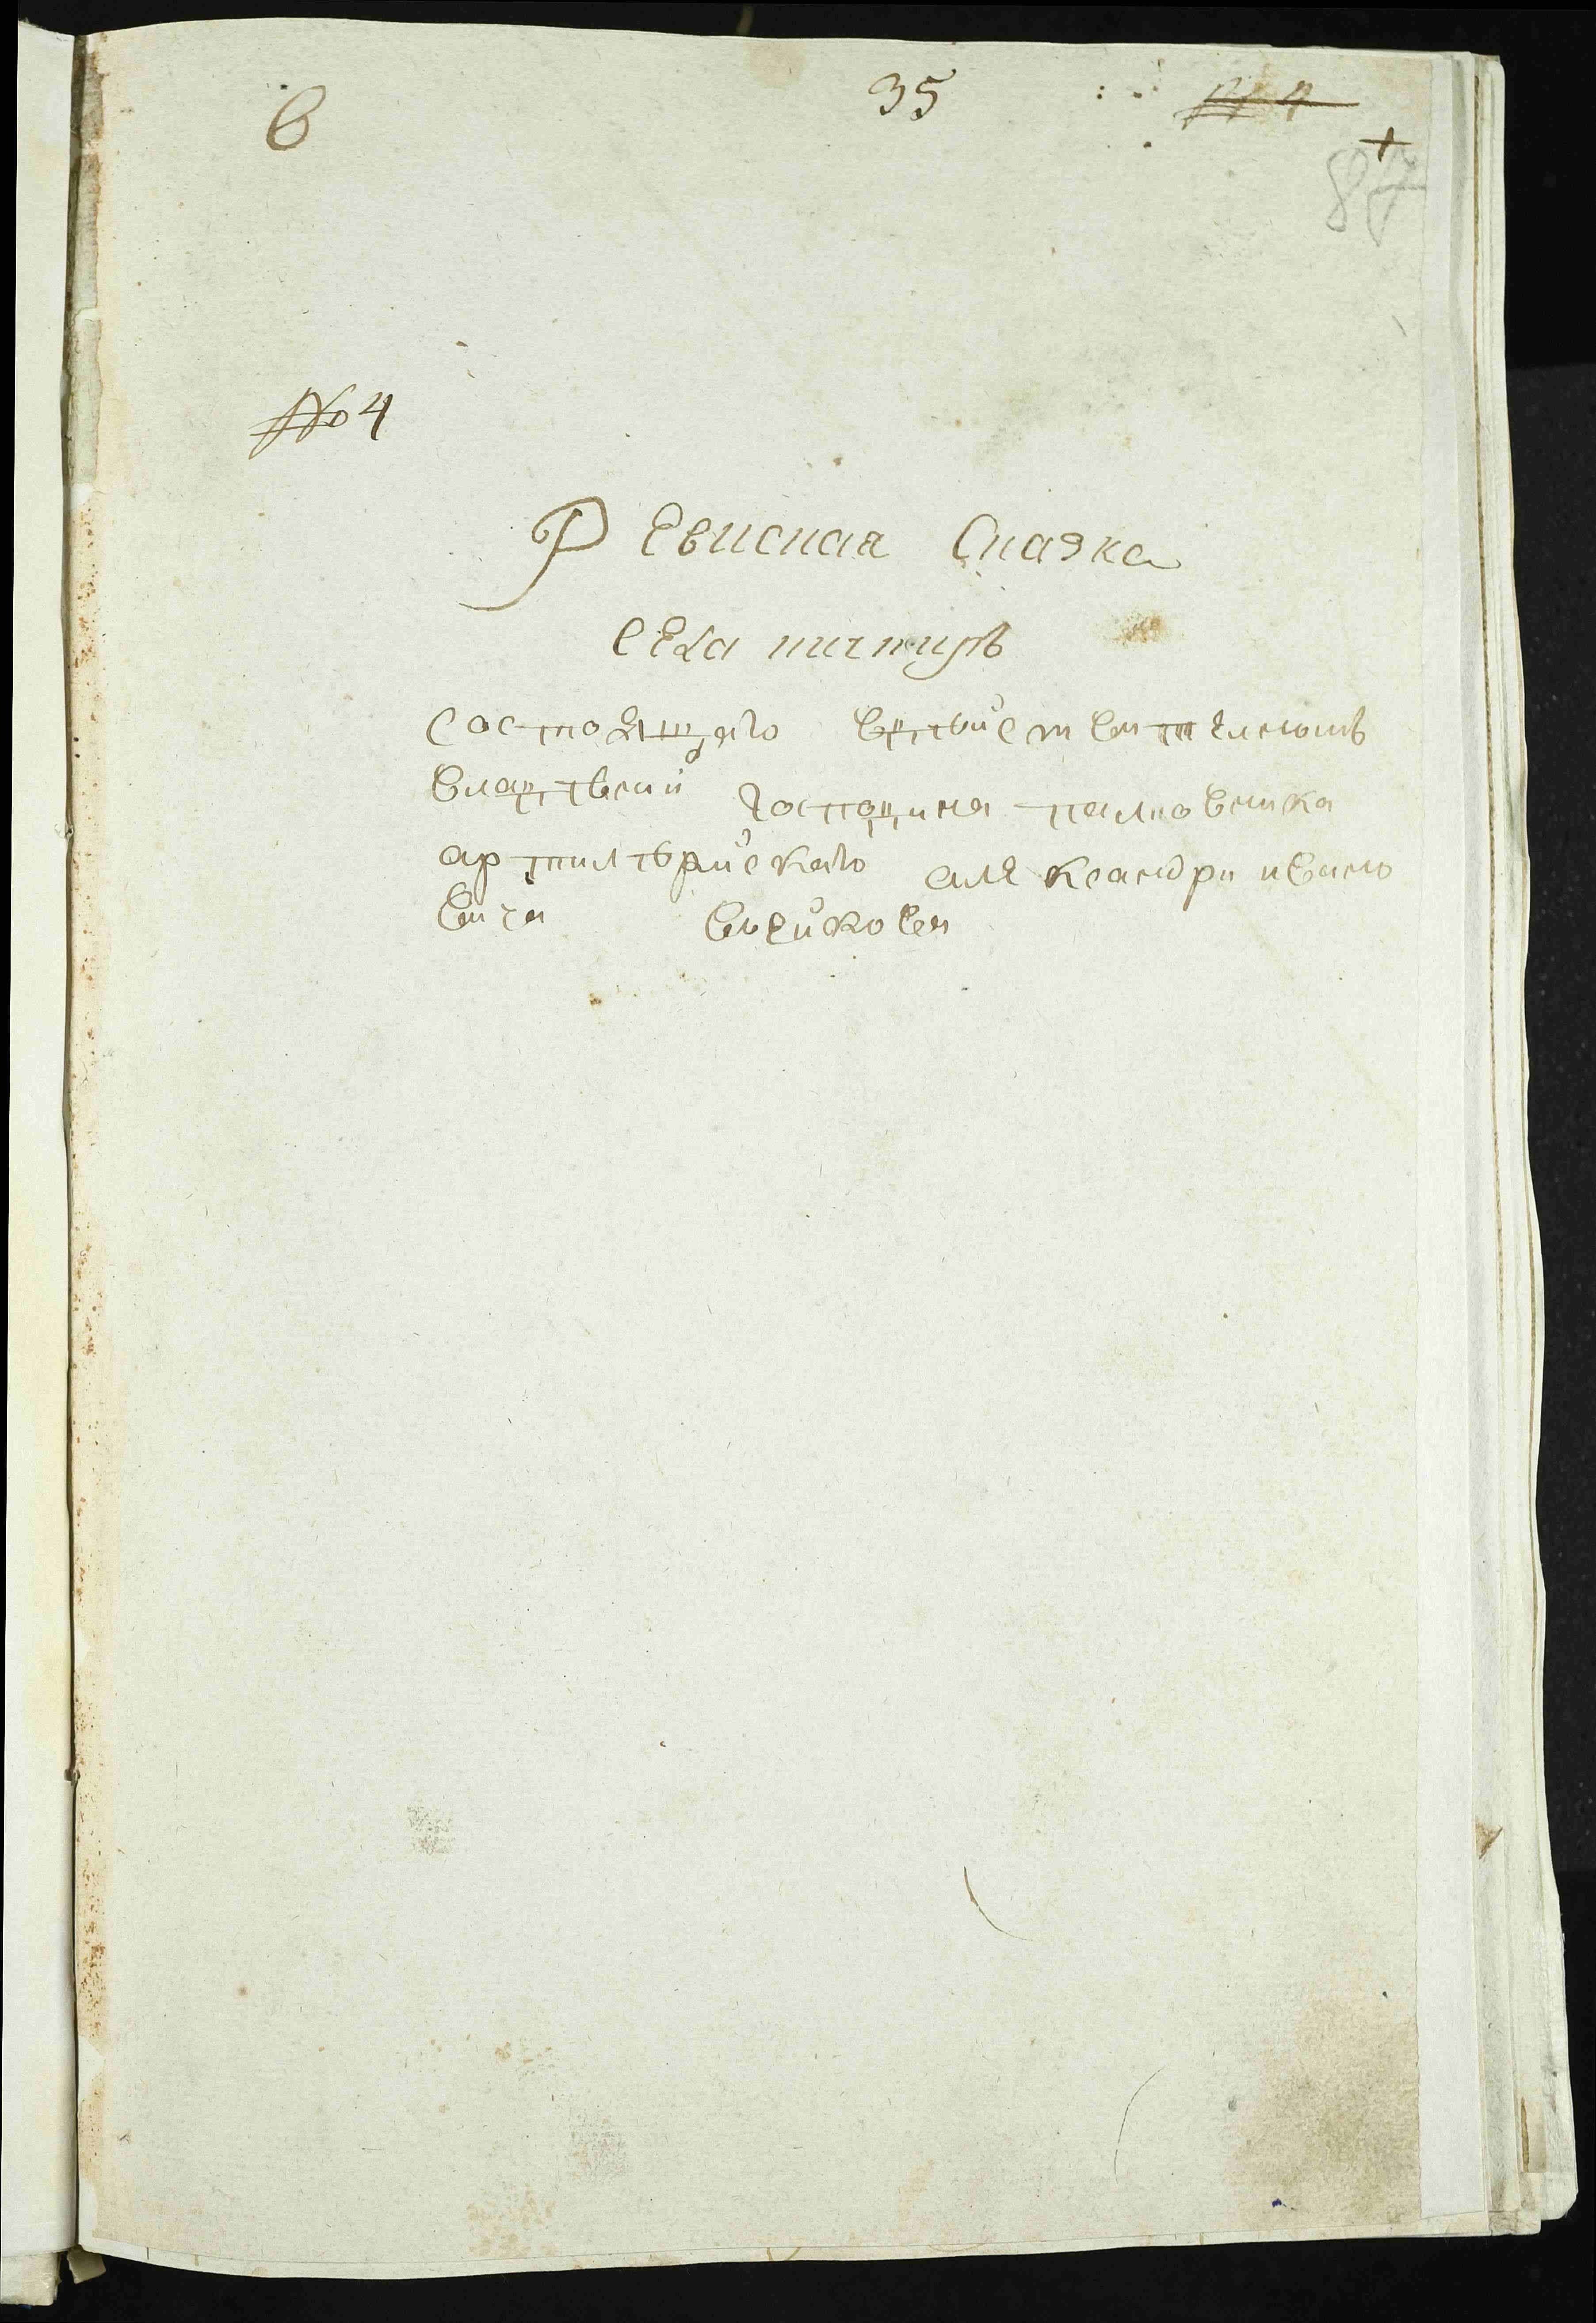 6 35 № 4
+
87
№ 4
Ревиская Сказка
села
состоящаго вдѣйствителномъ
владствени господина палковника
артилѣрийскаго александра ивано
вича вы